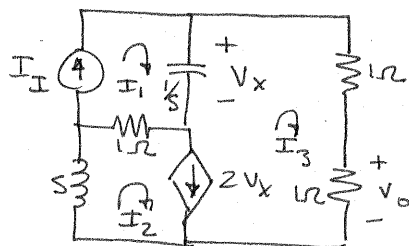 +
I_I
I_1
1/s
V_x
1Ω
-
1Ω
I_3
+
s
I_2
2V_x
1Ω
V_o
-